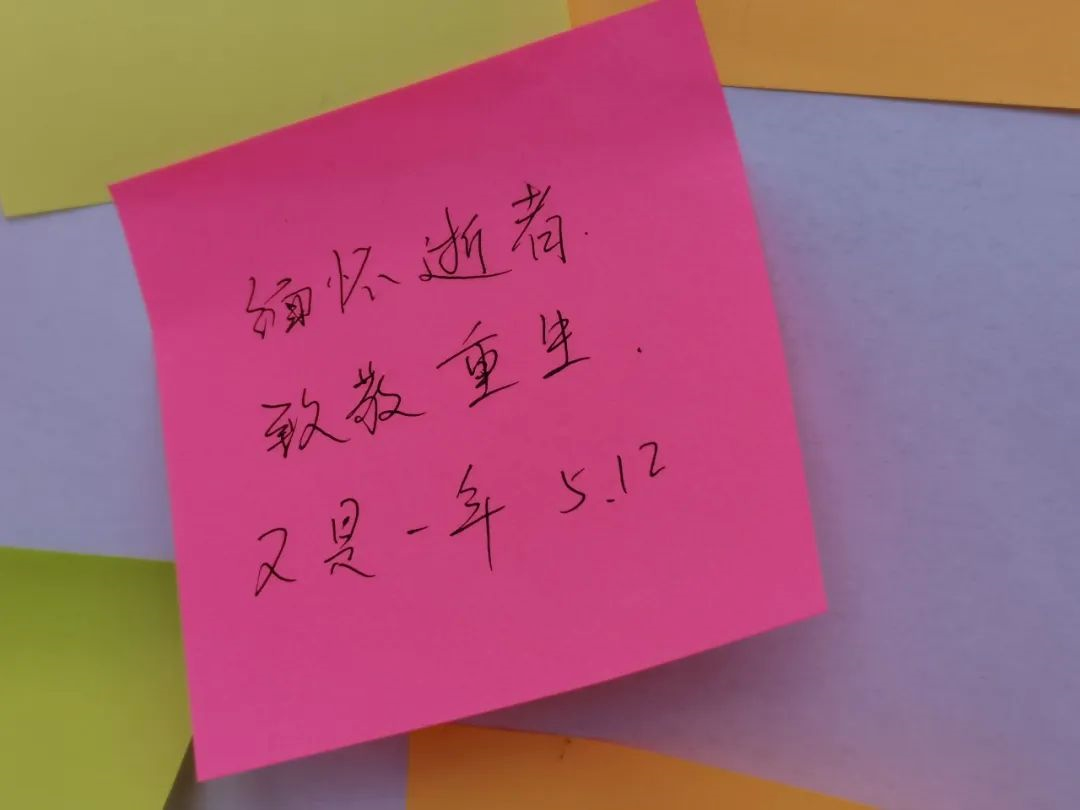 缅怀逝者.
致敬重生.
又是一年 5.12